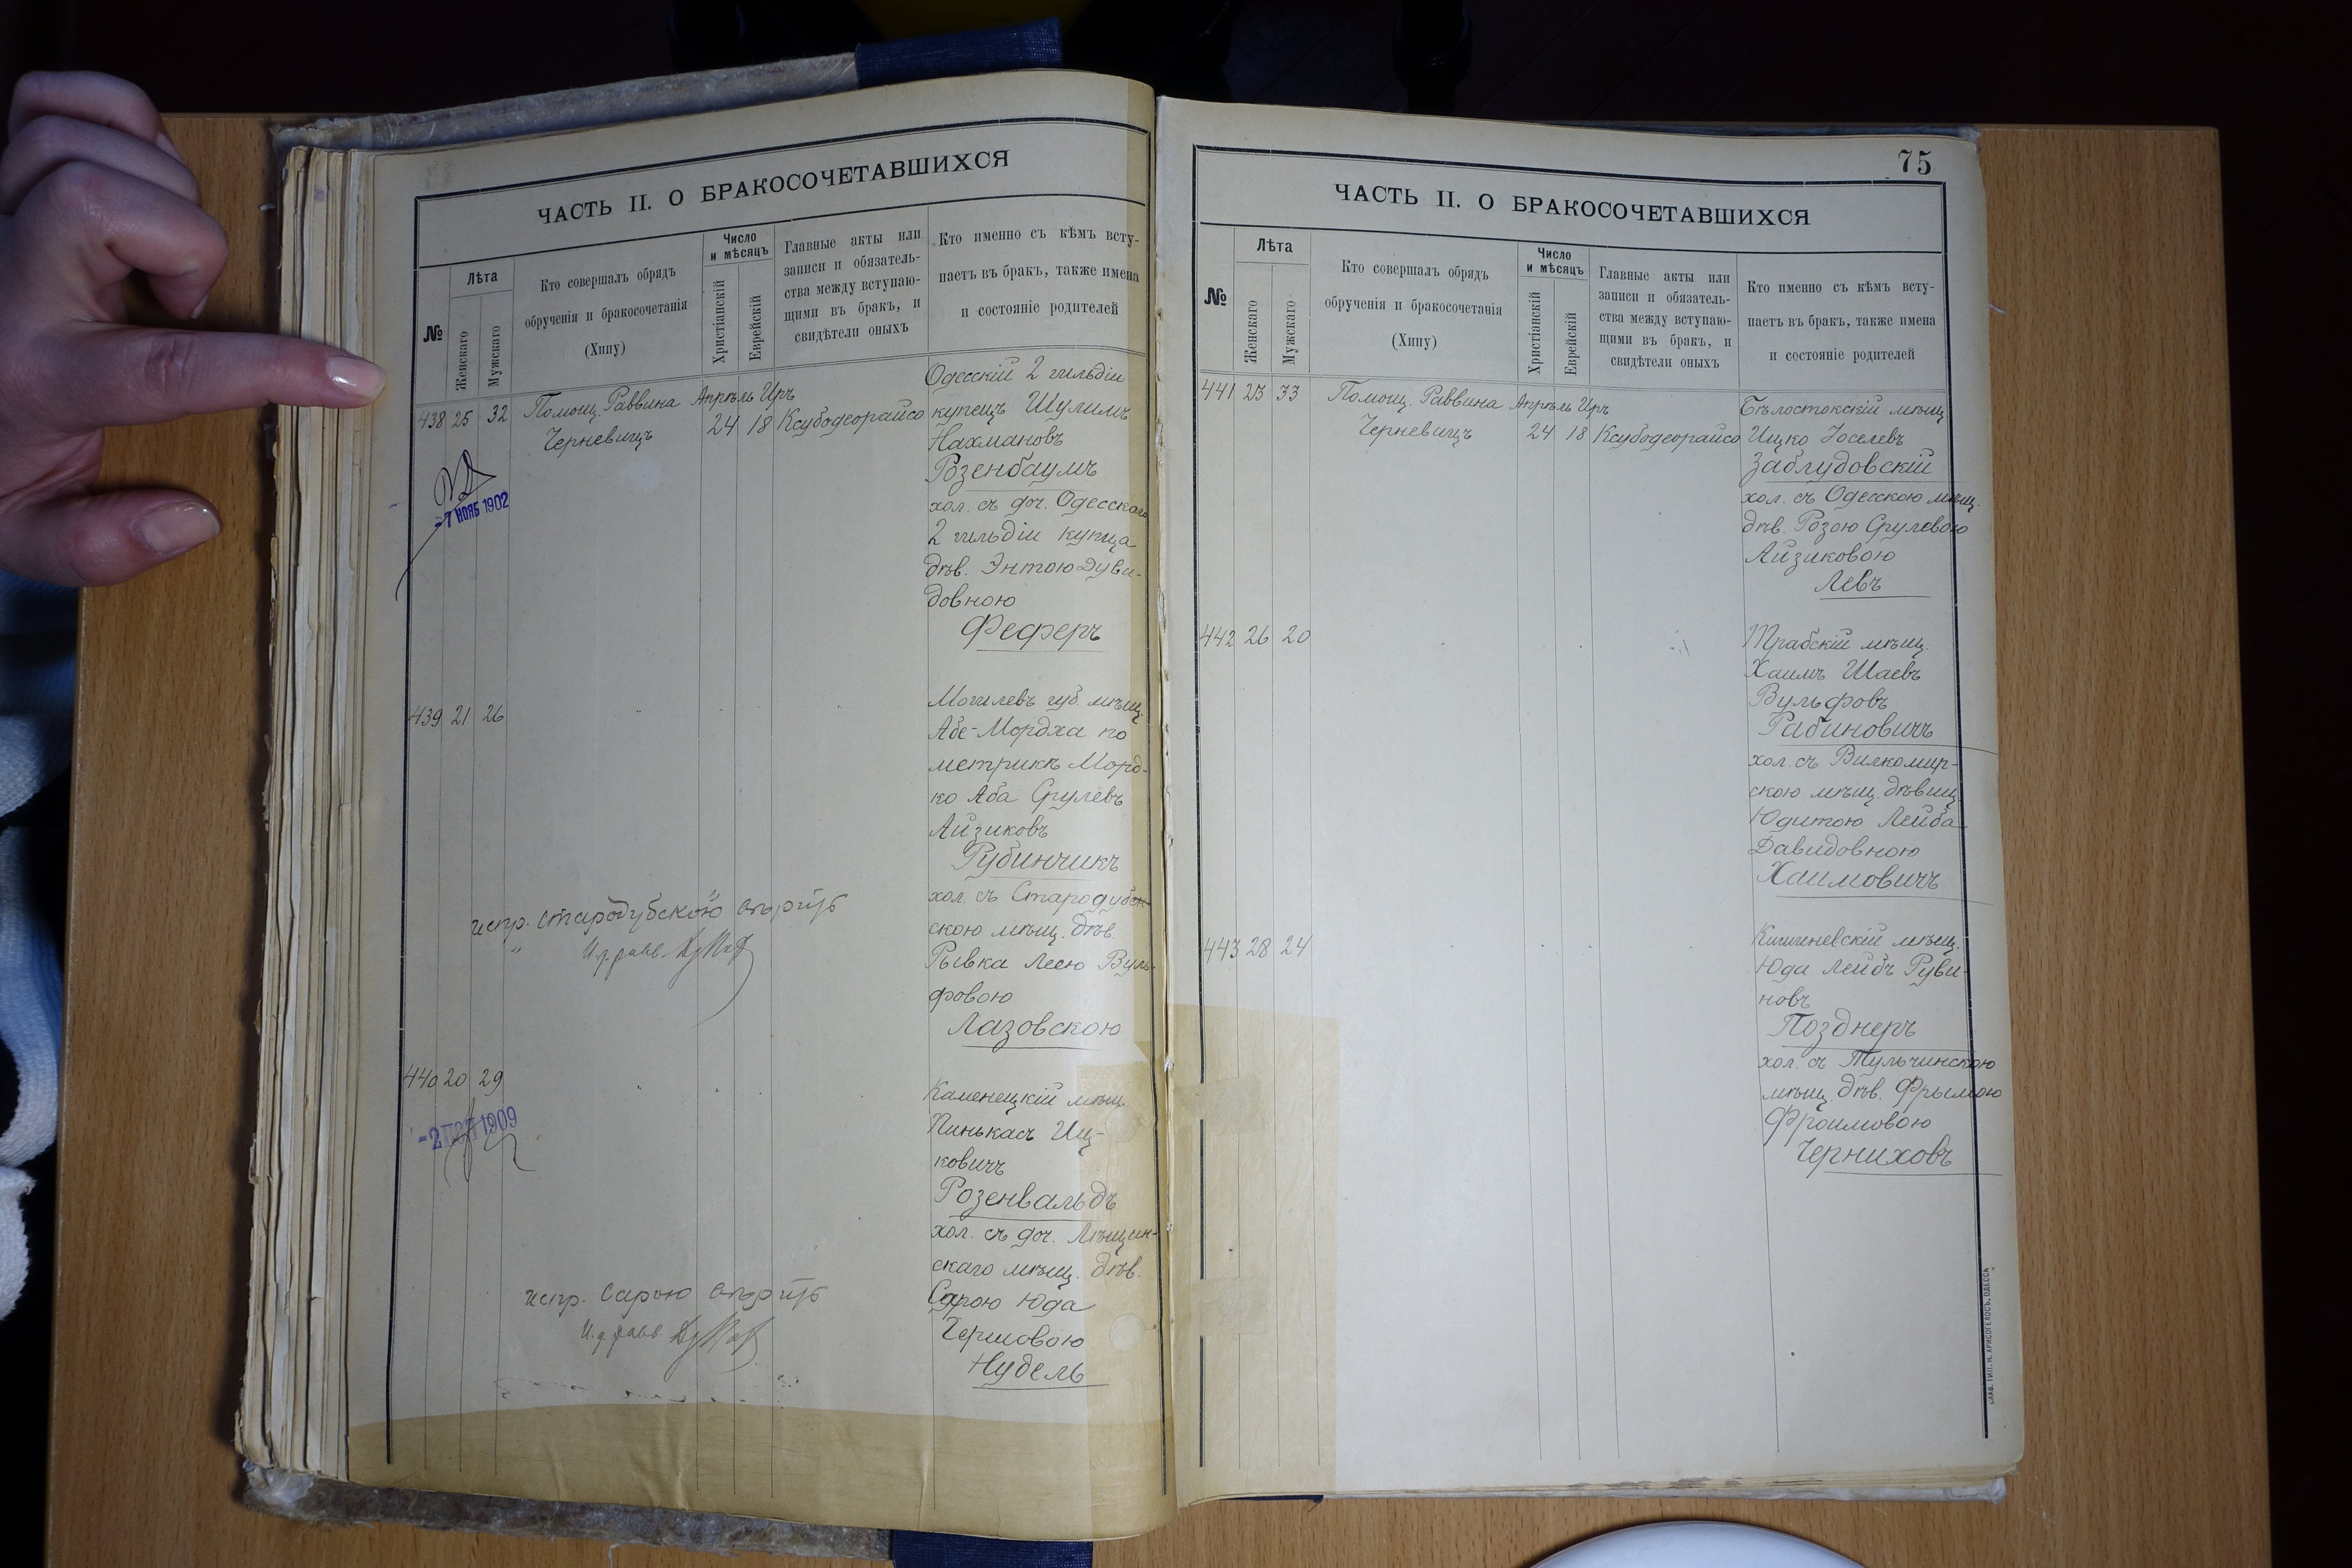 ЧАСТЬ II. О БРАКОСОЧЕТАВШИХСЯ
№
Лѣта
Женскаго
Мужскаго
Кто совершалъ обрядъ
обрученія и бракосочетанія
(Хипу)
Число
и мѣсяцъ
Христіанскій
Еврейскій
Главные акты или
записи и обязатель-
ства между вступаю-
щими въ бракъ, и
свидѣтели оныхъ
Кто именно съ кѣмъ всту-
паетъ въ бракъ, также имена
и состояніе родителей
438 25 32 Помощ. Раввина Апрѣль Иръ
Черневицъ 24 18 Ксубодеорайсо
-7 НОЯБ 1902
Одесскій 2 гильдіи
купецъ Шулимъ
Нахмановъ
Розенбаумъ
хол. съ доч. Одесскаго
2 гильдіи купца
дѣв. Энтою Дуви-
довною
Феферъ
439 21 26
Могилевъ губ. мѣщ.
Абе-Мордха по
метрикѣ Морд-
ко Аба Срулевъ
Айзиковъ
Рубинчикъ
хол. съ Стародубов-
скою мѣщ. дѣв.
Рывка Леею Вуль-
фовою
Лазовскою
испр. Стародубскою вѣрить
И.д. равв.
440 20 29
-2 1909
Каменецкій мѣщ.
Пинькасъ Иц-
ковичъ
Розенвальдъ
хол. съ доч.
скаго мѣщ. дѣв.
Сарою Юда
Гершовою
Нудель
испр. Сарою вѣрить
И.д. равв
75
ЧАСТЬ II. О БРАКОСОЧЕТАВШИХСЯ
№
Лѣта
Женскаго
Мужскаго
Кто совершалъ обрядъ
обрученія и бракосочетанія
(Хипу)
Число
и мѣсяцъ
Христіанскій
Еврейскій
Главные акты или
записи и обязатель-
ства между вступаю-
щими въ бракъ, и
свидѣтели оныхъ
Кто именно съ кѣмъ всту-
паетъ въ бракъ, также имена
и состояніе родителей
441 25 33 Помощ. Раввина Апрѣль Иръ
Черневицъ 24 18 Ксубодеорайсо
Бѣлостокскій мѣщ
Ицко Іоселевъ
Заблудовскій
хол. съ Одесскою мѣщ.
дѣв. Розою Срулевою
Айзиковою
Левъ
442 26 20
Трабскій мѣщ.
Хаимъ Шаевъ
Вульфовъ
Рабиновичъ
хол. съ Вилкомир-
скою мѣщ. дѣвиц.
Юдитою Лейба
Давидовною
Хаимовичъ
443 28 24
Кишиневскій мѣщ.
Юда Лейбъ Руви-
новъ
Позднеръ
хол. съ Тульчинскою
мѣщ. дѣв. Фрымою
Фроимовою
Черниховъ
СЛАВ. ТИП. Н. ХРИСОГЕЛОСЪ, ОДЕССА